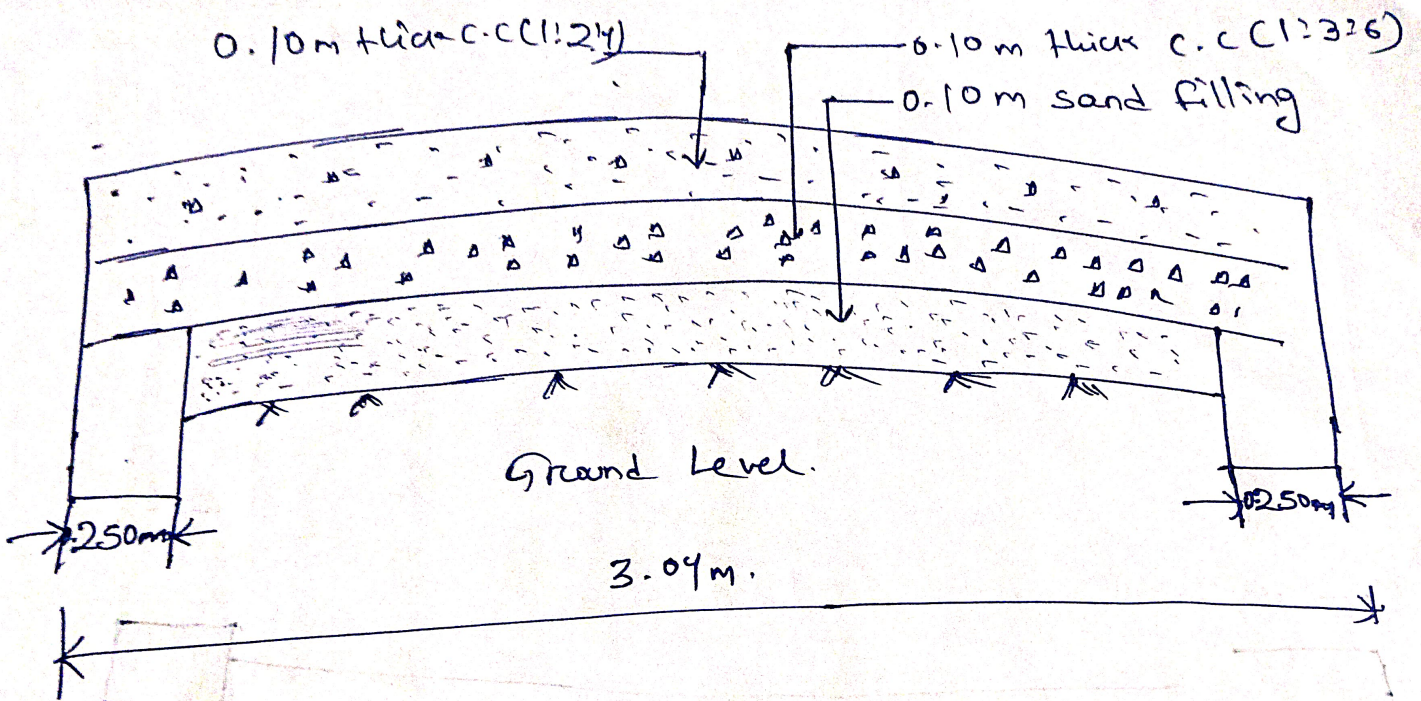 0.10m thick C.C(1:2:4)
0.10m thick C.C(1:3:6)
0.10m sand filling
Ground Level.
0.250m
0.250m
3.04m.